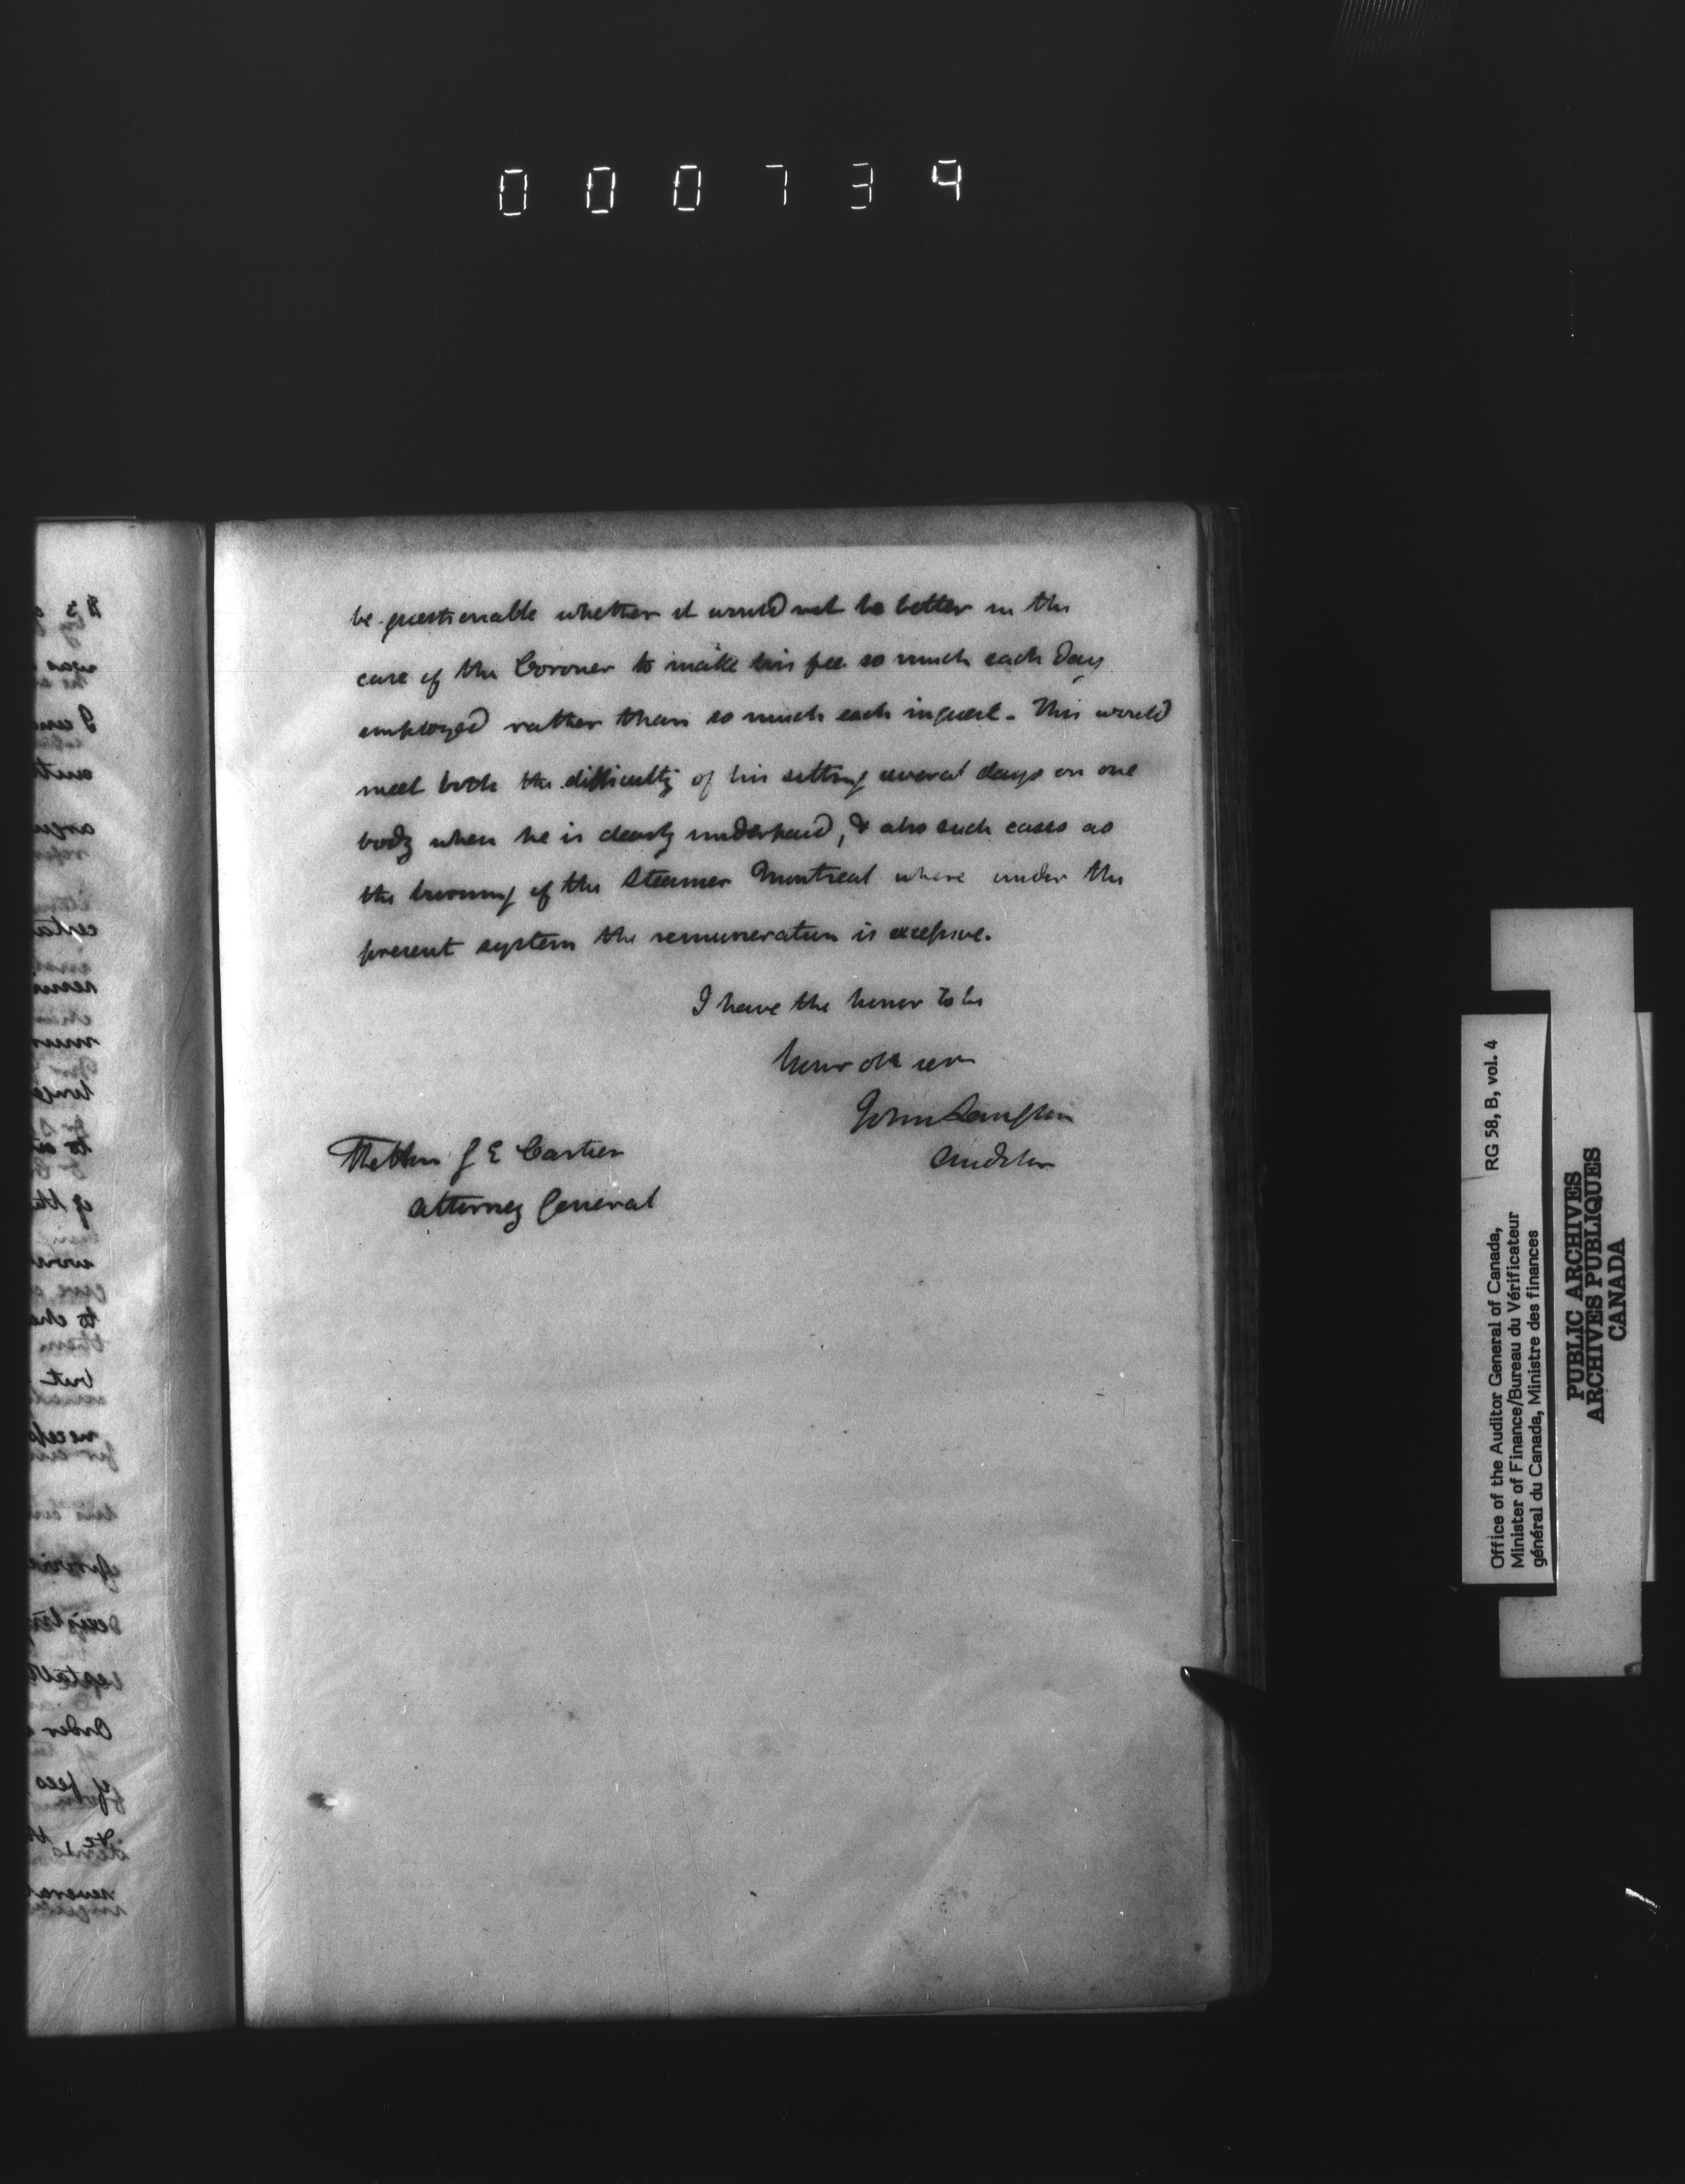 000734
be questionable whether it would not be better in the
case of the Coroner to make his fee so much each day
employed rather than so much each inquest. This would
meet both the difficulty of his sitting several days on one
body when he is clearly underpaid, & also such cases as
the burning of the Steamer Montreal where under the
present system the remuneration is excessive.
I have the honor to be
John Langton
Auditor
The Hon G E Cartier
Attorney General
RG 58, B, vol. 4
Office of the Auditor General of Canada,
Minister of Finance/Bureau du Vérificateur
général du Canada, Ministre des finances
PUBLIC ARCHIVES
ARCHIVES PUBLIQUES
CANADA